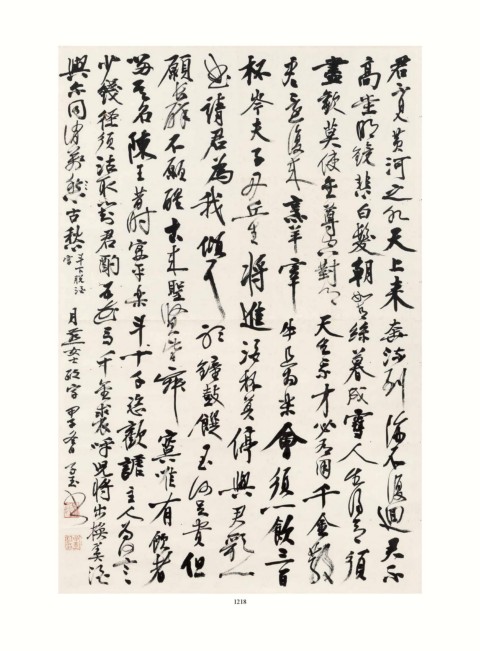 君不見黄河之水天上来奔流到海不復迴君不
高堂明鏡悲白髮朝如青絲暮成雪人生得意須
盡歡莫使金尊空對月天生我才必有用千金散
盡還復来烹羊宰牛且為樂會須一飲三百
杯岑夫子丹丘生將進酒杯莫停與君歌一
曲請君為我傾耳聽鐘鼓饌玉何足貴但
願長醉不願醒古来聖賢皆寂寞唯有飲者
留其名陳王昔時宴平樂斗十千恣歡謔主人為何言
少錢徑須沽取對君酌五花馬千金裘呼兒將出換美酒
與尔同消萬古愁斗下脱酒字月女士政字甲子
1218